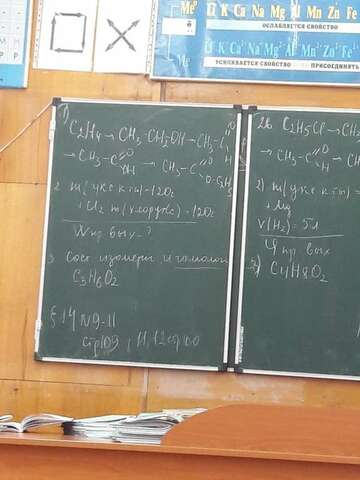 Li K Ca Na Mg Al Mn Zn Fe
ОСЛАБЛЯЕТСЯ СВОЙСТВО
Li K Ca Na Mg Al Mn Zn Fe
УСИЛИВАЕТСЯ СВОЙСТВО ПРИСОЕДИНЯТЬ
1)
C2H4 → CH3-CH2OH → CH3-C O H
→ CH3-C O OH → CH3-C O O-C2H5
2. m(укс к-ты) = 120г
+ Cl2 m(хлоруксс) = 120г
W пр. вых - ?
3. Сост изомеры и гомологи
C3H6O2
§ 14 N9-11
стр 109, 11,12 стр 100
2в. C2H5Cl → CH
→ CH3-C O H → CH
2) m(укс к-ты) =
+ Mg
V(H2) = 5л
Ч пр. вых
3) C4H8O2